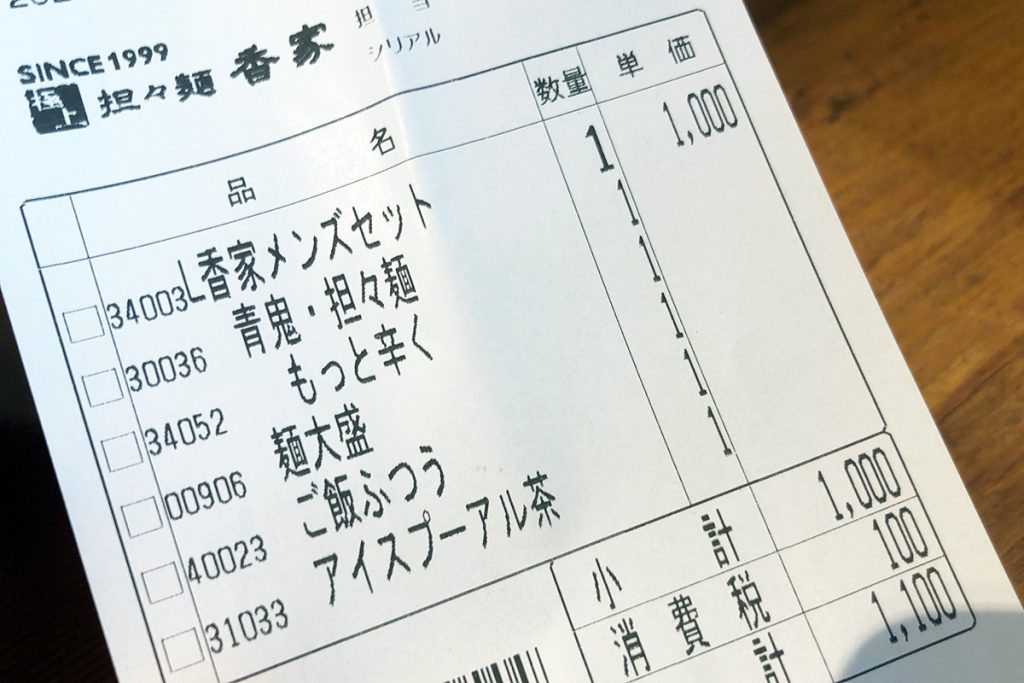 担 当
シリアル
SINCE 1999
極上 担々麺 香家
品 名 数量 単 価
34003 L香家メンズセット 1 1,000
30036 青鬼・担々麺 1
34052 もっと辛く 1
00906 麺大盛 1
40023 ご飯ふつう 1
31033 アイスプーアル茶 1
小 計 1,000
消 費 税 100
計 1,100